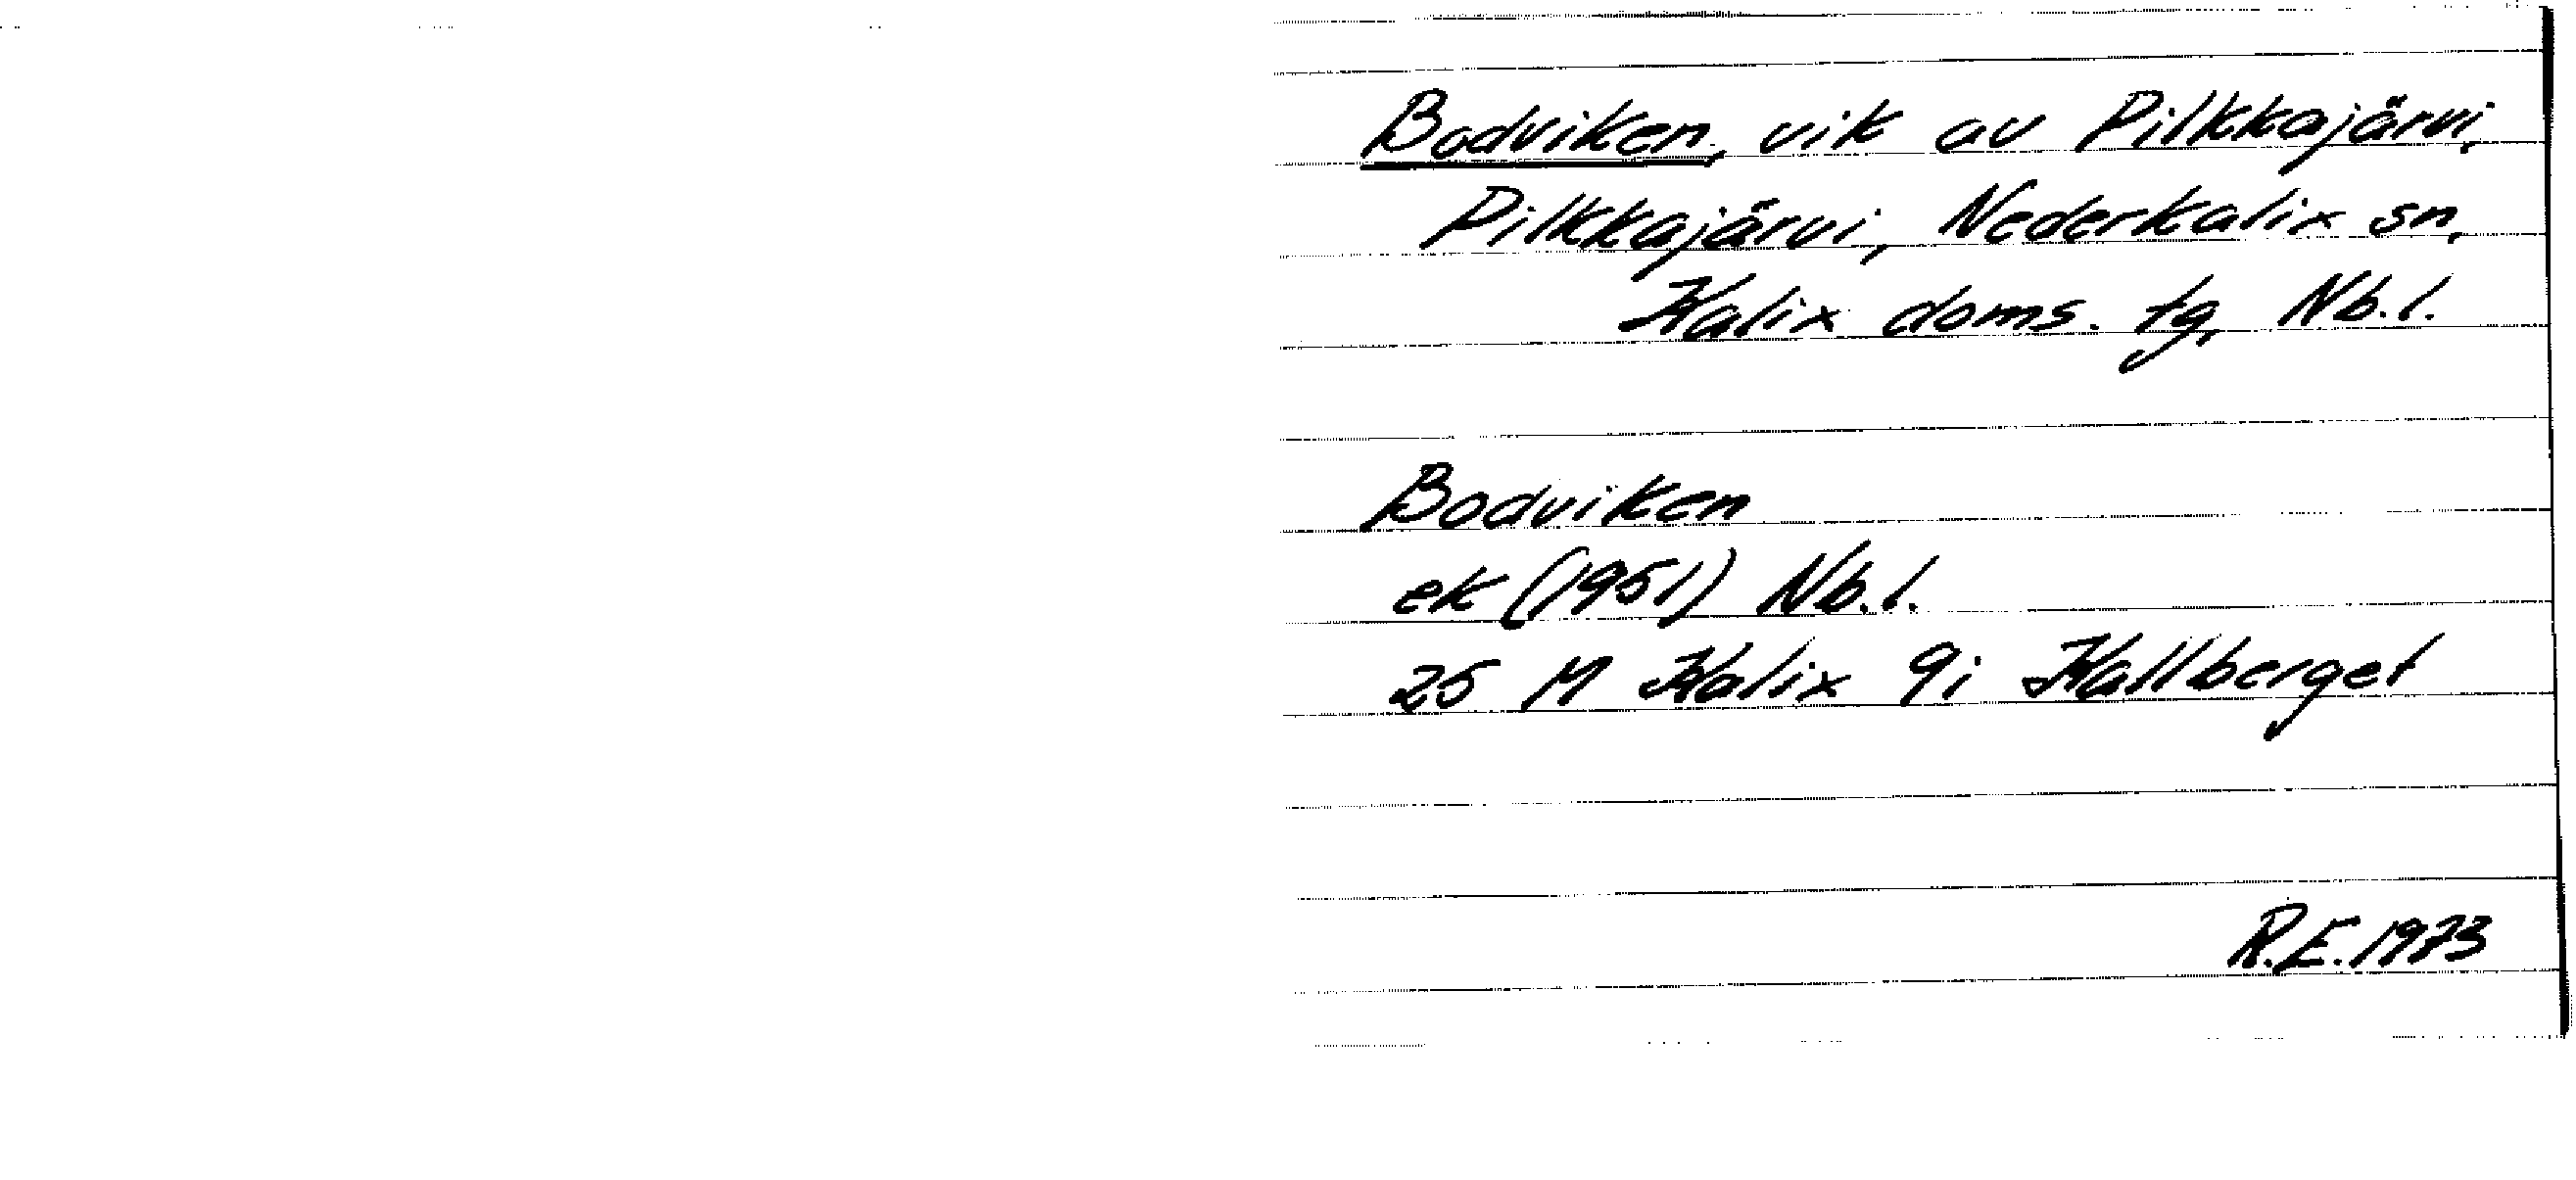 Bodviken, vik av Pilkkajärvi,
Pilkkajärvi, Nederkalix sn,
Kalix doms. tg, Nb.l.
Bodviken
ek (1951) Nb.l.
25 M Kalix 9i Kallberget
R.E. 1973